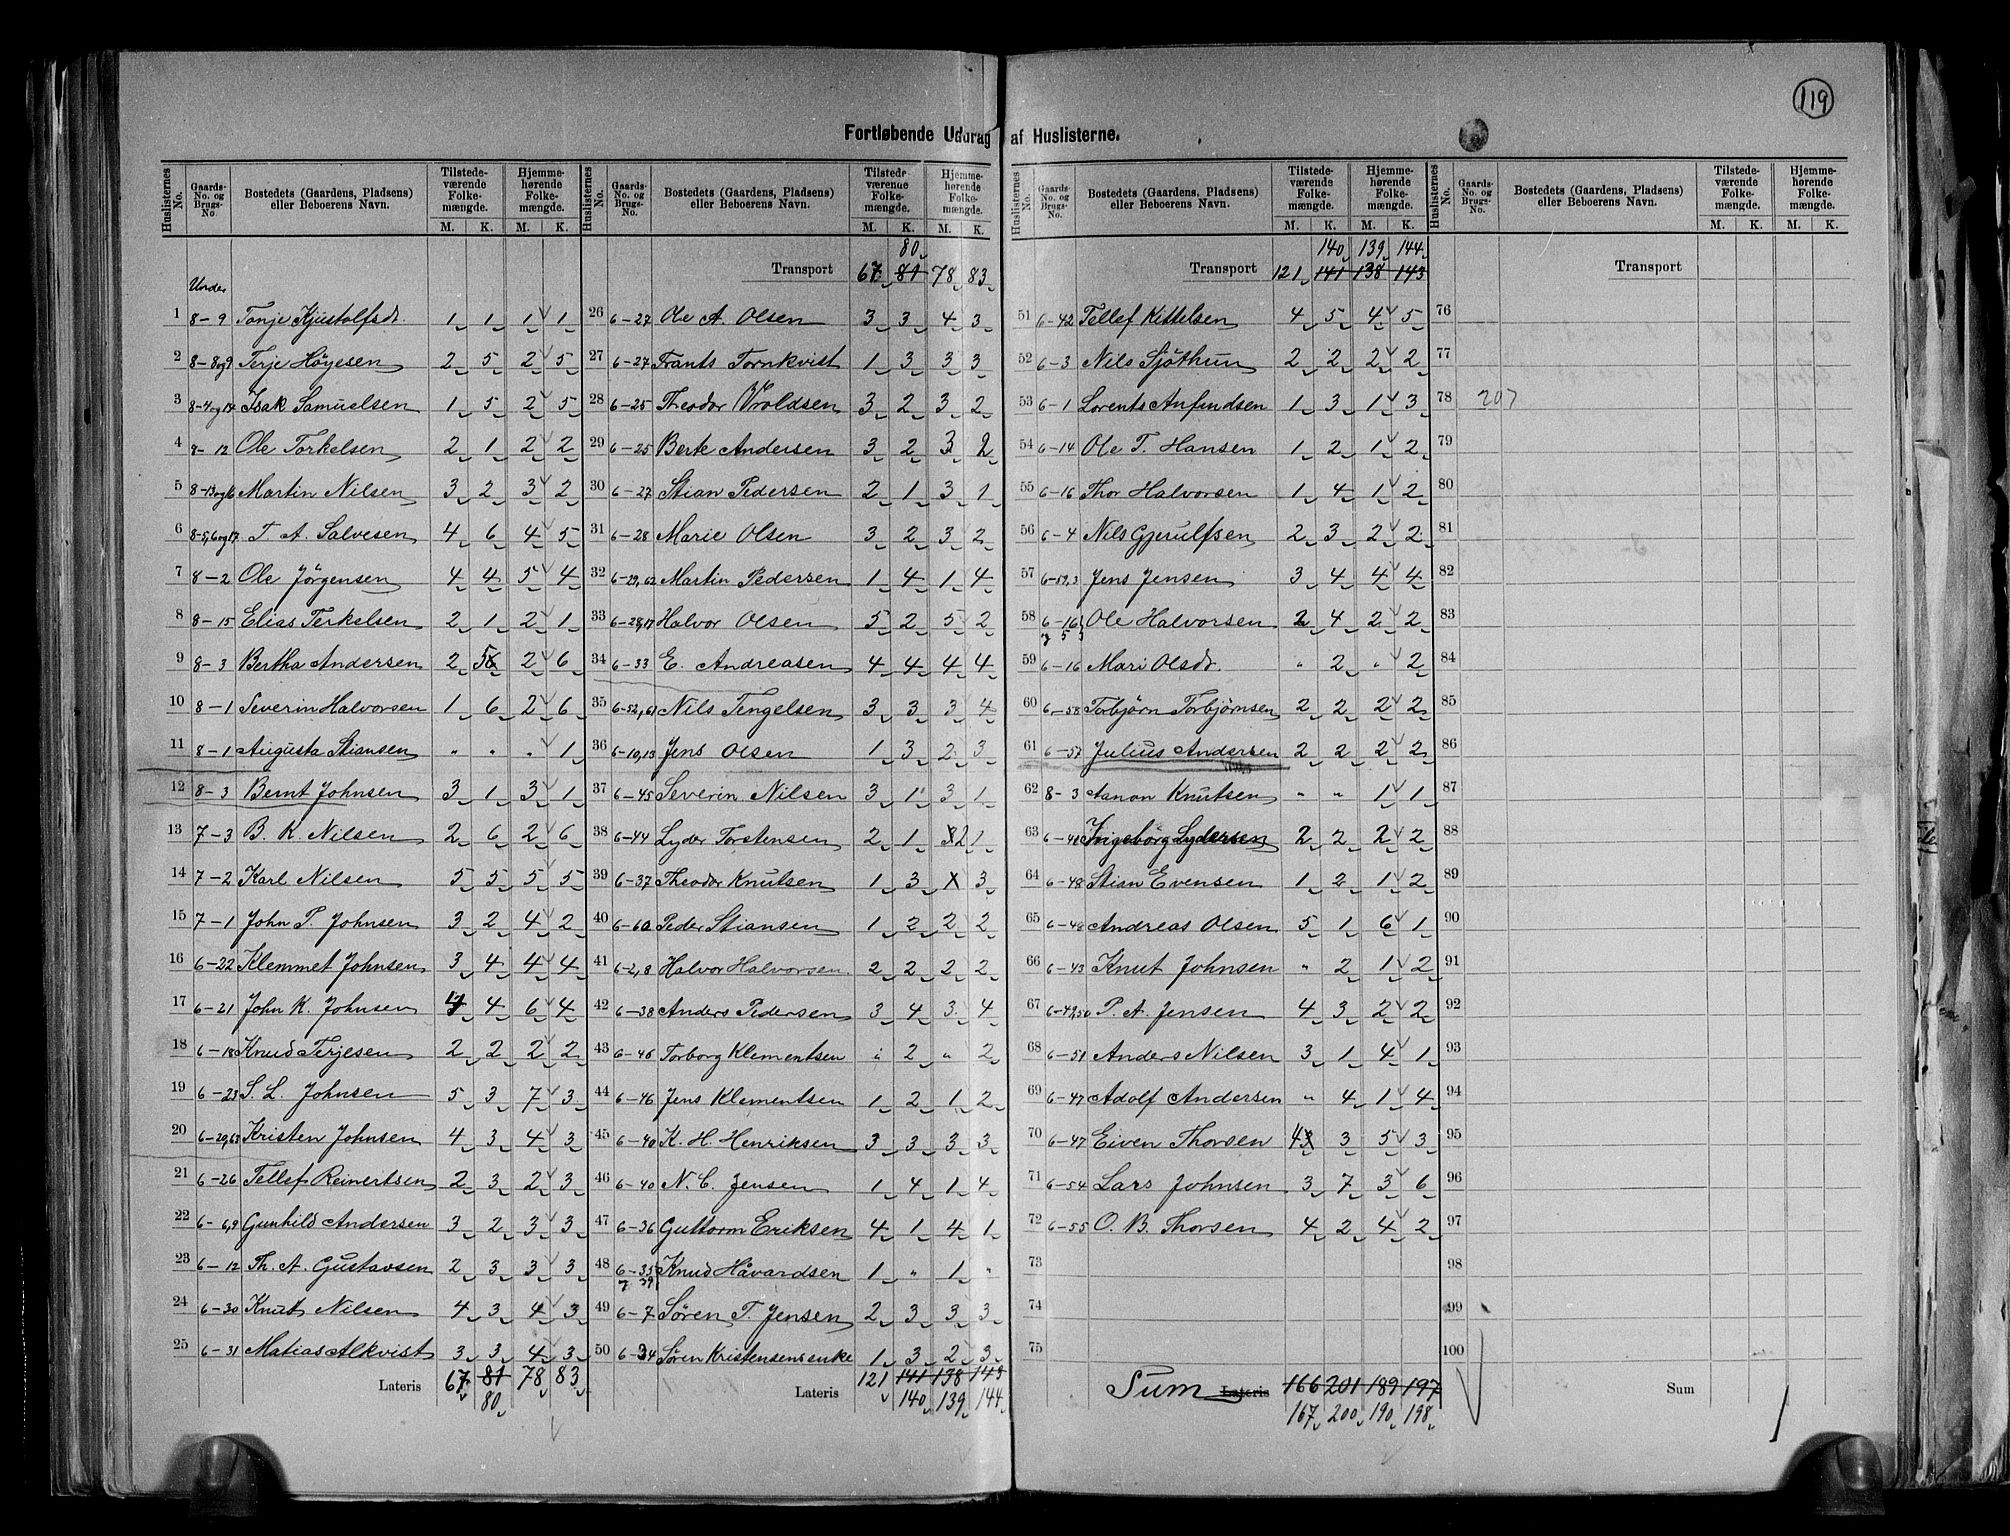 119
Fortløbende Uddrag af Huslisterne.
Huslisternes No. Gaards-No. og Brugs-No. Bostedets (Gaardens, Pladsens) eller Beboerens Navn. Tilstedeværende Folkemængde. M. K. Hjemmehørende Folkemængde. M. K.
Under
1 8-9 Tonje Kjustolfsdr. 1 1 1 1
2 8-8og9 Terje Höyesen 2 5 2 5
3 8-4og14 Isak Samuelsen 1 5 2 5
4 8-12 Ole Torkelsen 2 1 2 2
5 8-13og16 Martin Nilsen 3 2 3 2
6 8-5,6og17 T. A. Salvesen 4 6 4 5
7 8-2 Ole Jörgensen 4 4 5 4
8 8-15 Elias Terkelsen 2 1 2 1
9 8-3 Bertha Andersen 2 5 2 6
10 8-1 Severin Halvorsen 1 6 2 6
11 8-1 Augusta Stiansen " " " 1
12 8-3 Bernt Johnsen 3 1 3 1
13 7-3 B. K. Nilsen 2 6 2 6
14 7-2 Karl Nilsen 5 5 5 5
15 7-1 John P. Johnsen 3 2 4 2
16 6-22 Klemmet Johnsen 3 4 4 4
17 6-21 John K. Johnsen 4 4 6 4
18 6-18 Knud Terjesen 2 2 2 2
19 6-23 S. L. Johnsen 5 3 7 3
20 6-20,63 Kristen Johnsen 4 3 4 3
21 6-26 Tellef Reinertsen 2 3 2 3
22 6-6,9 Gunhild Andersen 3 2 3 3
23 6-12 Th. A. Gustavsen 2 3 3 3
24 6-30 Knut Nilsen 4 3 4 3
25 6-31 Matias Alkvist 3 3 4 3
Lateris 67 81 78 83
80
Huslisternes No. Gaards-No. og Brugs-No. Bostedets (Gaardens, Pladsens) eller Beboerens Navn. Tilstedeværende Folkemængde. M. K. Hjemmehørende Folkemængde. M. K.
80
Transport 67 81 78 83
26 6-27 Ole A. Olsen 3 3 4 3
27 6-27 Frants Tornkvist 1 3 3 3
28 6-25 Theodor Vroldsen 3 2 3 2
29 6-25 Berte Andersen 3 2 3 2
30 6-27 Stian Pedersen 2 1 3 1
31 6-28 Marie Olsen 3 2 3 2
32 6-29,62 Martin Pedersen 1 4 1 4
33 6-28,17 Halvor Olsen 5 2 5 2
34 6-33 E. Andreasen 4 4 4 4
35 6-52,61 Nils Tengelsen 3 3 3 4
36 6-10,13 Jens Olsen 1 3 2 3
37 6-45 Severin Nilsen 3 1 3 1
38 6-44 Lyder Torstensen 2 1 2 1
39 6-37 Theodor Knutsen 1 3 X 3
40 6-60 Peder Stiansen 1 2 2 2
41 6-2,8 Halvor Halvorsen 2 2 2 2
42 6-38 Anders Pedersen 3 4 3 4
43 6-46 Torborg Klementsen " 2 " 2
44 6-46 Jens Klementsen 1 2 1 2
45 6-40 K. H. Henriksen 3 3 3 3
46 6-40 N. C. Jensen 1 4 1 4
47 6-36 Guttorm Eriksen 4 1 4 1
48 6-35 39 Knud Håvardsen 1 " 1 "
49 6-7 Søren T. Jensen 2 3 3 3
50 6-34 Søren Kristensens enke 1 3 2 3
Lateris 121 141 138 143
140 139 144
Huslisternes No. Gaards-No. og Brugs-No. Bostedets (Gaardens, Pladsens) eller Beboerens Navn. Tilstedeværende Folkemængde. M. K. Hjemmehørende Folkemængde. M. K.
140 139 144
Transport 121 141 138 143
51 6-42 Tellef Kittelsen 4 5 4 5
52 6-3 Nils Sjöthun 2 2 2 2
53 6-1 Lorents Anfindsen 1 3 1 3
54 6-14 Ole T. Hansen 1 2 1 2
55 6-16 Thor Halvorsen 1 4 1 2
56 6-4 Nils Gjerulfsen 2 3 2 2
57 6-59,3 Jens Jensen 3 4 4 4
58 6-16 Ole Halvorsen 2 4 2 2
59 6-16 Mari Olsdr. " 2 " 2
60 6-58 Torbjørn Torbjørnsen 2 2 2 2
61 6-57 Julius Andersen 2 2 2 2
62 8-3 Aanon Knutsen " " 1 1
63 6-41 Ingebörg Lydersen 2 2 2 2
64 6-48 Stian Evensen 1 2 1 2
65 6-48 Andreas Olsen 5 1 6 1
66 6-43 Knut Johnsen " 2 1 2
67 6-49,50 P. A. Jensen 4 3 2 2
68 6-51 Anders Nilsen 3 1 4 1
69 6-47 Adolf Andersen " 4 1 4
70 6-47 Eiven Thorsen 4 3 5 3
71 6-54 Lars Johnsen 3 7 3 6
72 6-55 O. B. Thorsen 4 2 4 2
73
74
75
Sum Lateris 166 201 189 197
167 200 190 198
Huslisternes No. Gaards-No. og Brugs-No. Bostedets (Gaardens, Pladsens) eller Beboerens Navn. Tilstedeværende Folkemængde. M. K. Hjemmehørende Folkemængde. M. K.
Transport
76
77
78 207
79
80
81
82
83
84
85
86
87
88
89
90
91
92
93
94
95
96
97
98
99
100
Sum